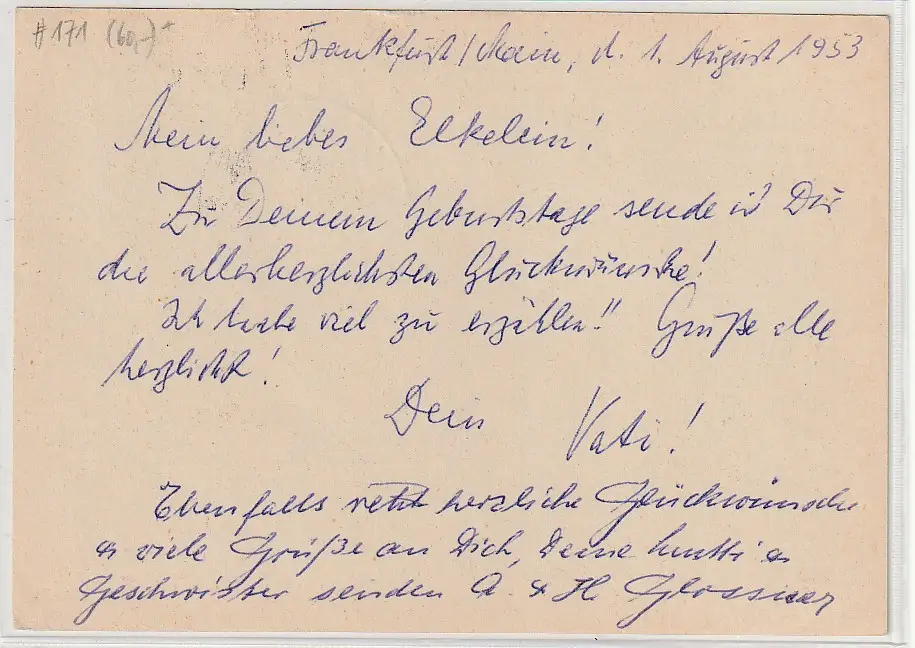 #171 (60,-)
Frankfurt/Main, d. 1. August 1953
Mein liebes Elkelein!
Zu Deinem Geburtstage sende ich Dir
die allerherzlichsten Glückwünsche!
Ich habe viel zu erzählen!! Grüße alle
herzlichst!
Dein Vati!
Ebenfalls recht herzliche Glückwünsche
& viele Grüße an Dich, Deine Mutti &
Geschwister senden A. & H.